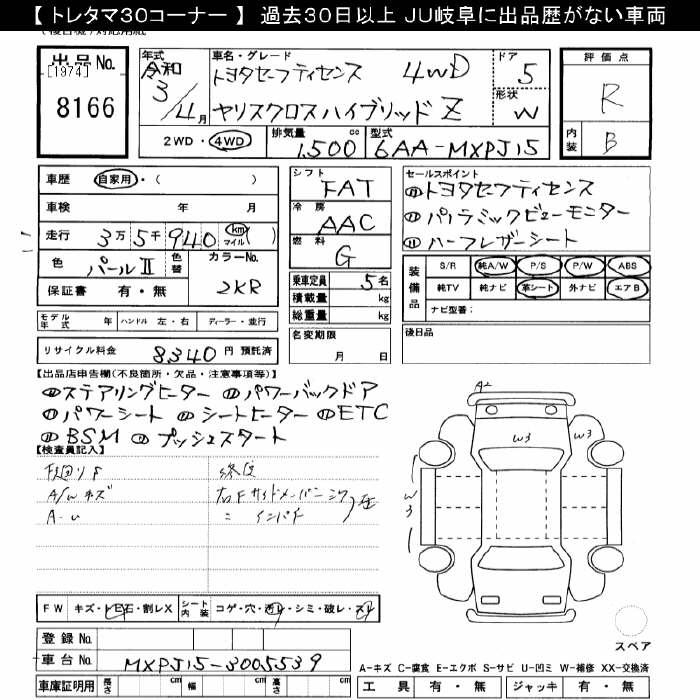 【 トレタマ30コーナー 】 過去30日以上 JU岐阜に出品歴がない車両
出品 No.
[1974]
8166
年式
令和
3/4月
車名・グレード
トヨタセーフティセンス 4WD
ヤリスクロスハイブリッド Z
ドア
5
形状
W
評価点
R
内装
B
2WD ・ 4WD
排気量
1,500 cc
型式
6AA-MXPJ15
車歴 自家用・( )
車検 年 月
走行 3万5千940 km マイル ( )
色 パールⅡ 色替
カラーNo.
2KR
保証書 有・無
シフト
FAT
冷房
AAC
燃料
G
乗車定員 5名
積載量 kg
総重量 kg
セールスポイント
トヨタセフティセンス
パノラミックビューモニター
ハーフレザーシート
装備品
S/R 純A/W P/S P/W ABS
純TV 純ナビ 革シート 外ナビ エアB
ナビ型番:
モデル年式 年 ハンドル 左・右 ディーラー・並行
リサイクル料金 8340 円 預託済
名変期限
月 日
後日品
【出品店申告欄(不良箇所・欠品・注意事項等)】
ステアリングヒーター パワーバックドア
パワーシート シートヒーター ETC
BSM プッシュスタート
【検査員記入】
A/Wキズ
A-U
インパチ
A2
W3
W3
W3
FW キズ・トビ石・割レX
シート内装 コゲ・穴・ ・シミ・破レ・
登録 No.
車台 No. MXPJ15-3005539
車庫証明用 長さ cm 幅 cm 高さ cm
スペア
A-キズ C-腐食 E-エクボ S-サビ U-凹ミ W-補修 XX-交換済
工具 有・無 ジャッキ 有・無